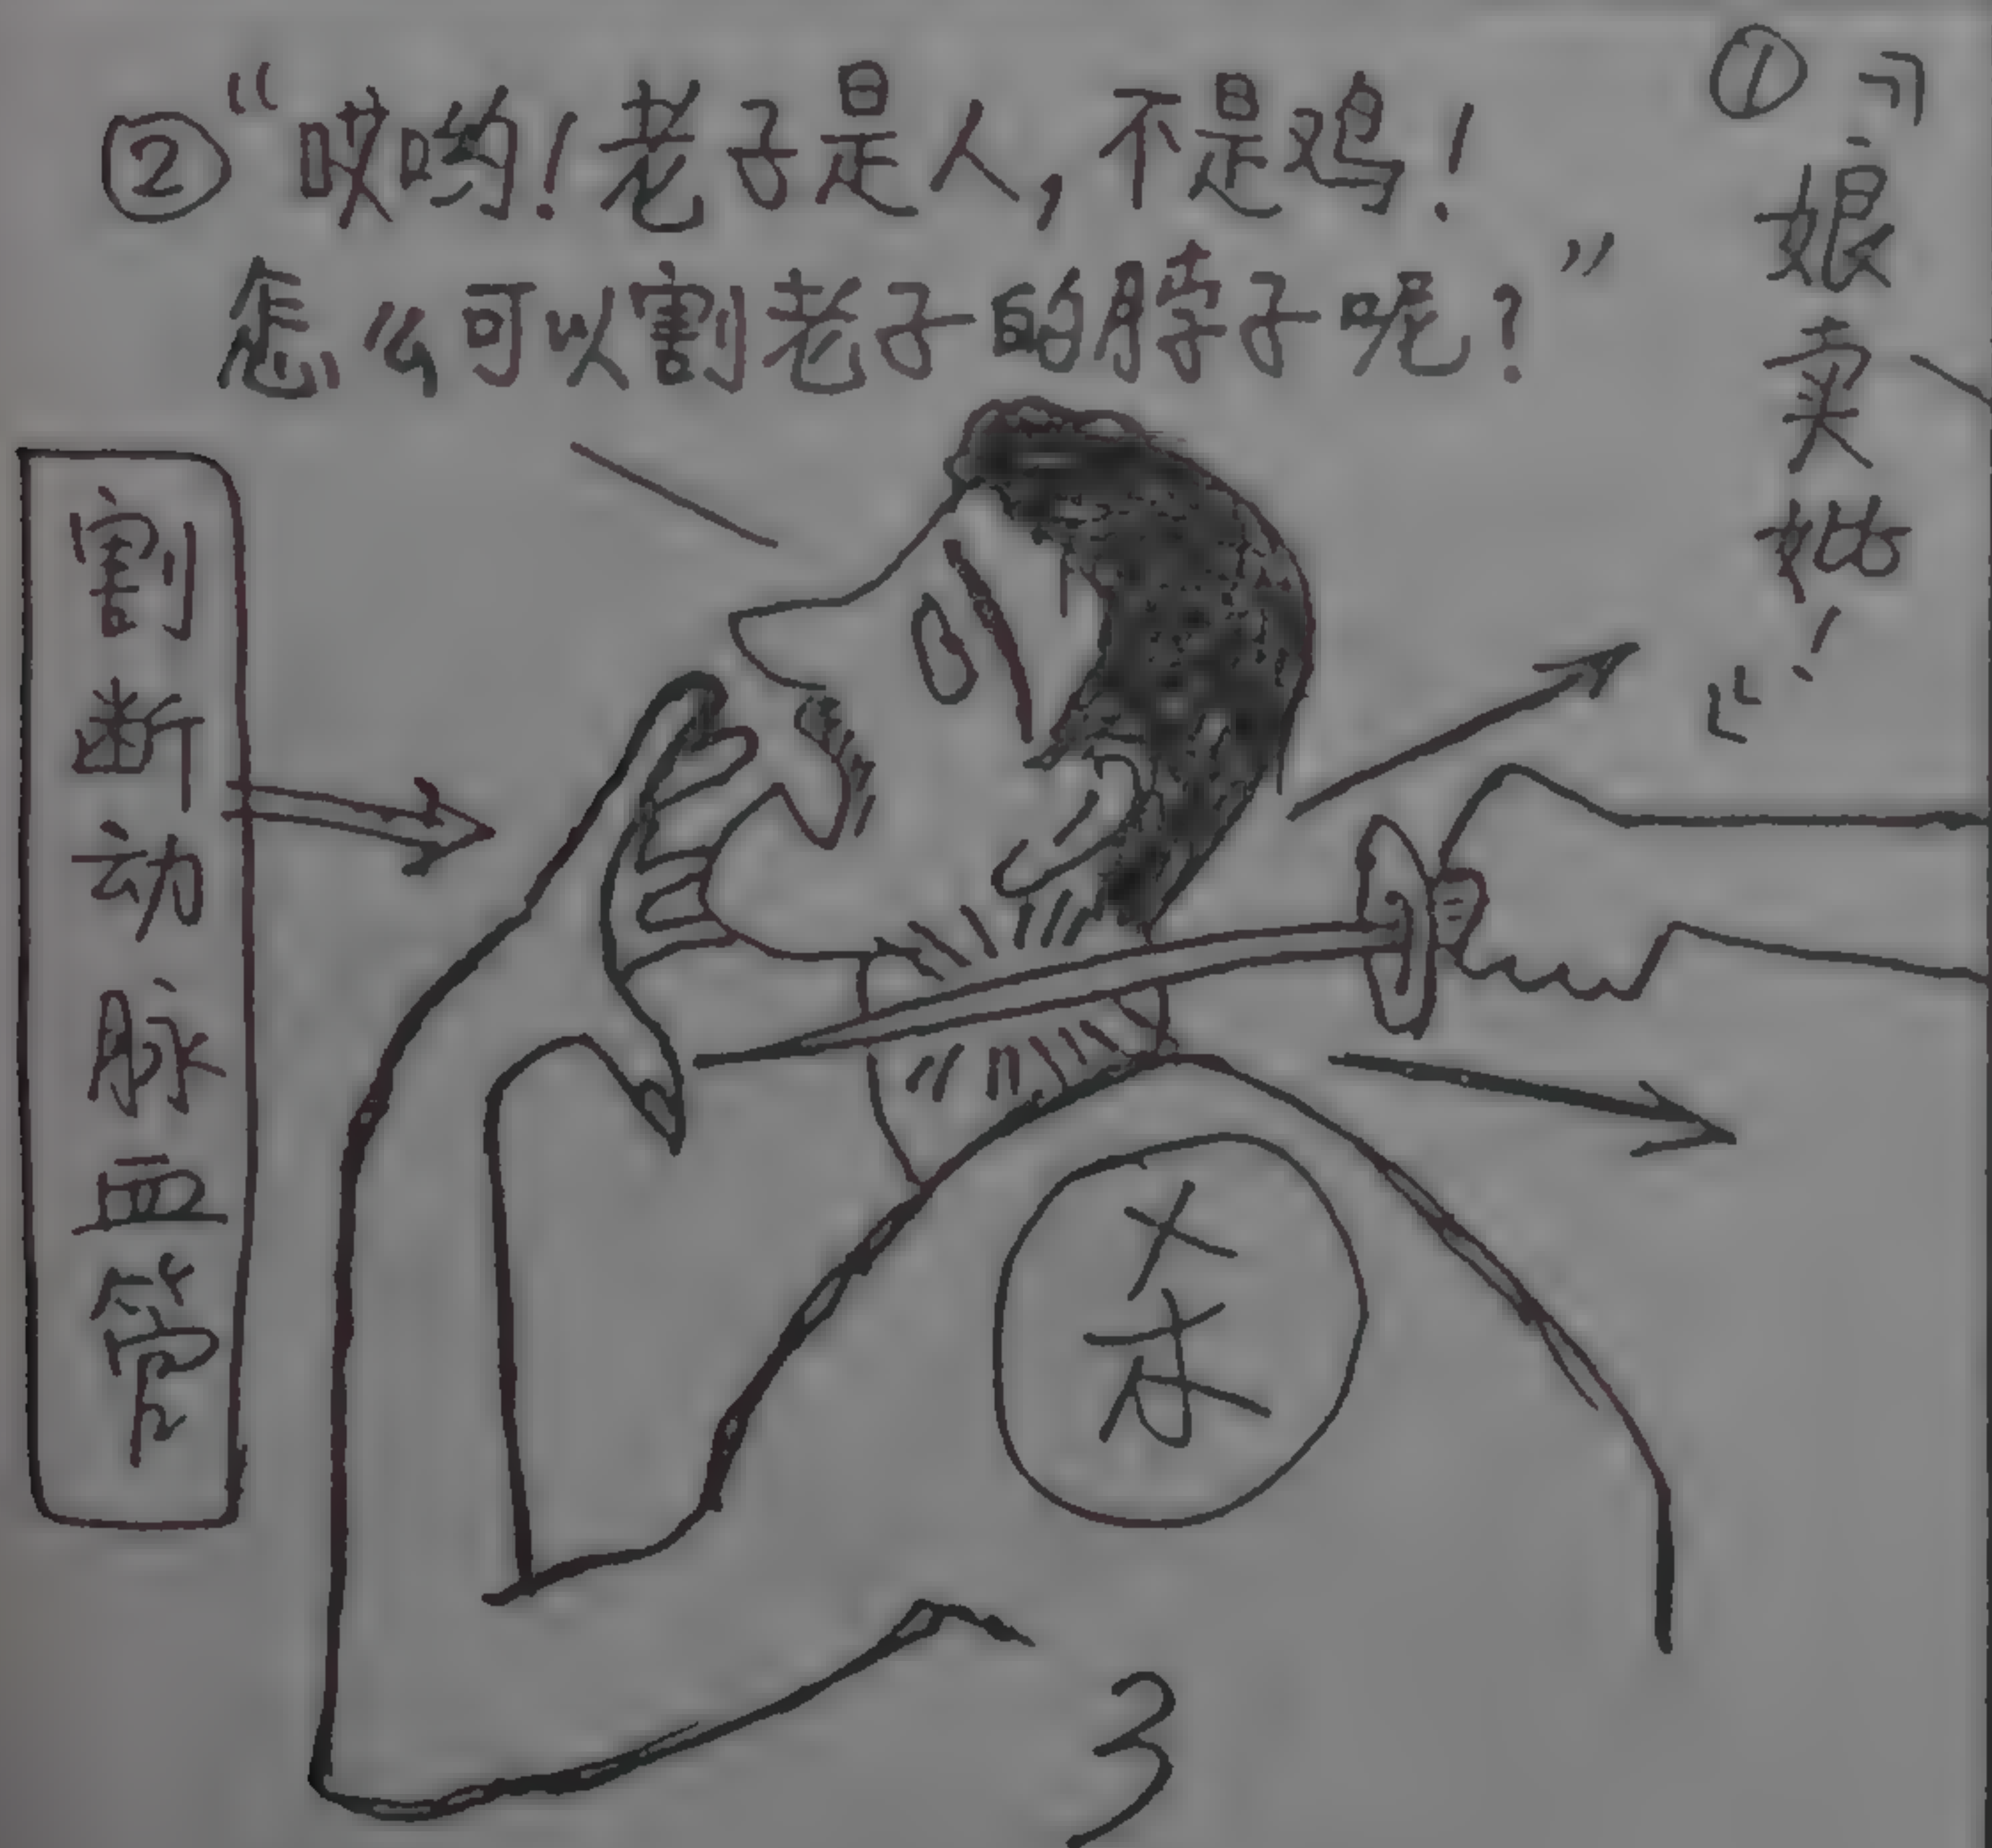 ①『娘卖妣!』
②“哎哟!老子是人,不是鸡!
怎么可以割老子的脖子呢?”
割断动脉血管
杀
3